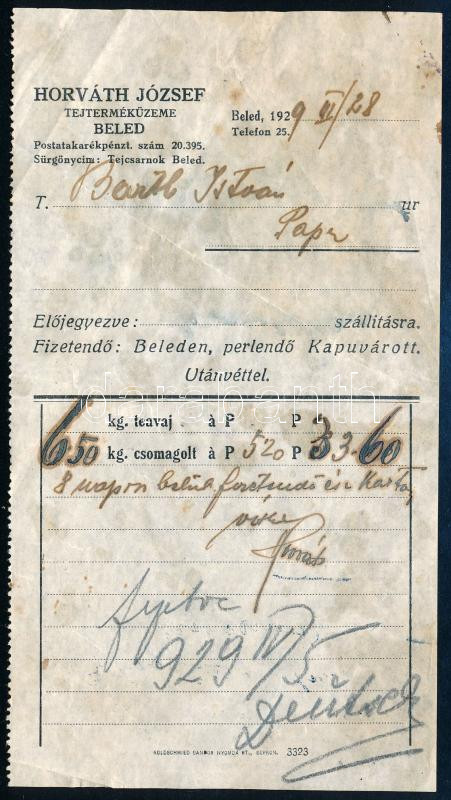 HORVÁTH JÓZSEF
TEJTERMÉKÜZEME
BELED
Postatakarékpénzt. szám 20.395.
Sürgönycím: Tejcsarnok Beled.
Beled, 1929 /28
Telefon 25.
T. Barth István ur
Papa
Előjegyezve: szállitásra.
Fizetendő: Beleden, perlendő Kapuvárott.
Utánvéttel.
kg. teavaj à P P
6 50 kg. csomagolt à P 520 P 33.60
8 napon belül
Horváth
929 IV/5
KOLDSCHMIED SANDOR NYOMDA RT., SOPRON. 3323
darabanth